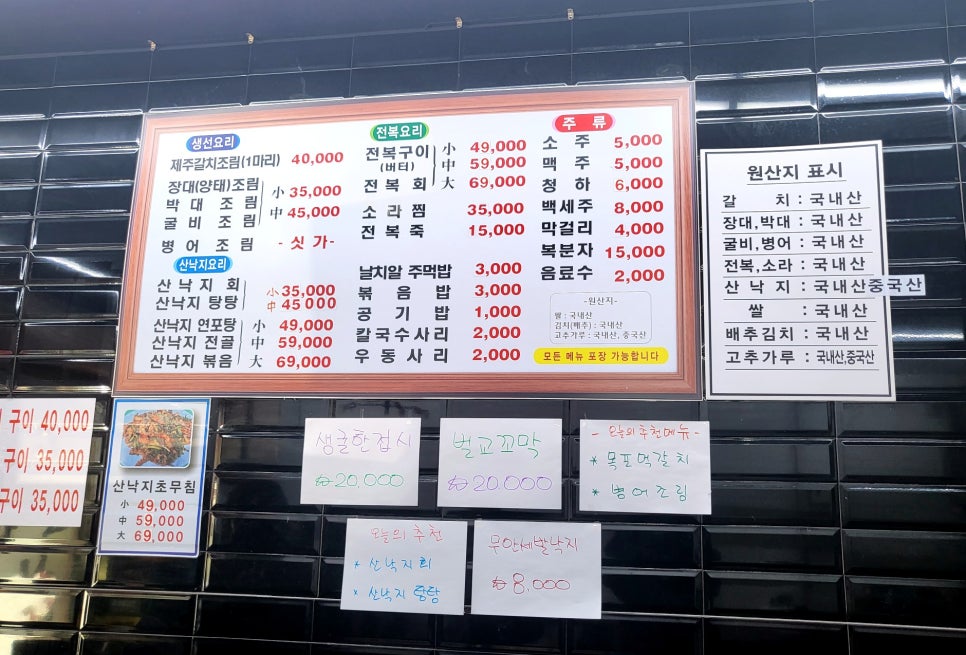 생선요리
제주갈치조림(1마리) 40,000
장대(양태)조림
박대 조림
굴비 조림
小 35,000
中 45,000
병어 조림 - 싯가-
산낙지요리
산낙지 회
산낙지 탕탕
小 35,000
中 45,000
산낙지 연포탕 小 49,000
산낙지 전골 中 59,000
산낙지 볶음 大 69,000
전복요리
전복구이
(버터)
전복 회
小 49,000
中 59,000
大 69,000
소라찜 35,000
전복죽 15,000
날치알 주먹밥 3,000
볶음밥 3,000
공기밥 1,000
칼국수사리 2,000
우동사리 2,000
주 류
소주 5,000
맥주 5,000
청하 6,000
백세주 8,000
막걸리 4,000
복분자 15,000
음료수 2,000
-원산지-
쌀 : 국내산
김치(배추) : 국내산
고추가루 : 국내산, 중국산
모든 메뉴 포장 가능합니다
원산지 표시
갈 치 : 국내산
장대,박대 : 국내산
굴비,병어 : 국내산
전복,소라 : 국내산
산 낙 지 : 국내산중국산
쌀 : 국내산
배추김치 : 국내산
고추가루 : 국내산,중국산
구이 40,000
구이 35,000
구이 35,000
산낙지초무침
小 49,000
中 59,000
大 69,000
생굴한접시
₩20,000
벌교꼬막
₩20,000
- 오늘의 추천메뉴 -
* 목포먹갈치
* 병어조림
오늘의 추천
* 산낙지회
* 산낙지 탕탕
무안세발낙지
₩8,000